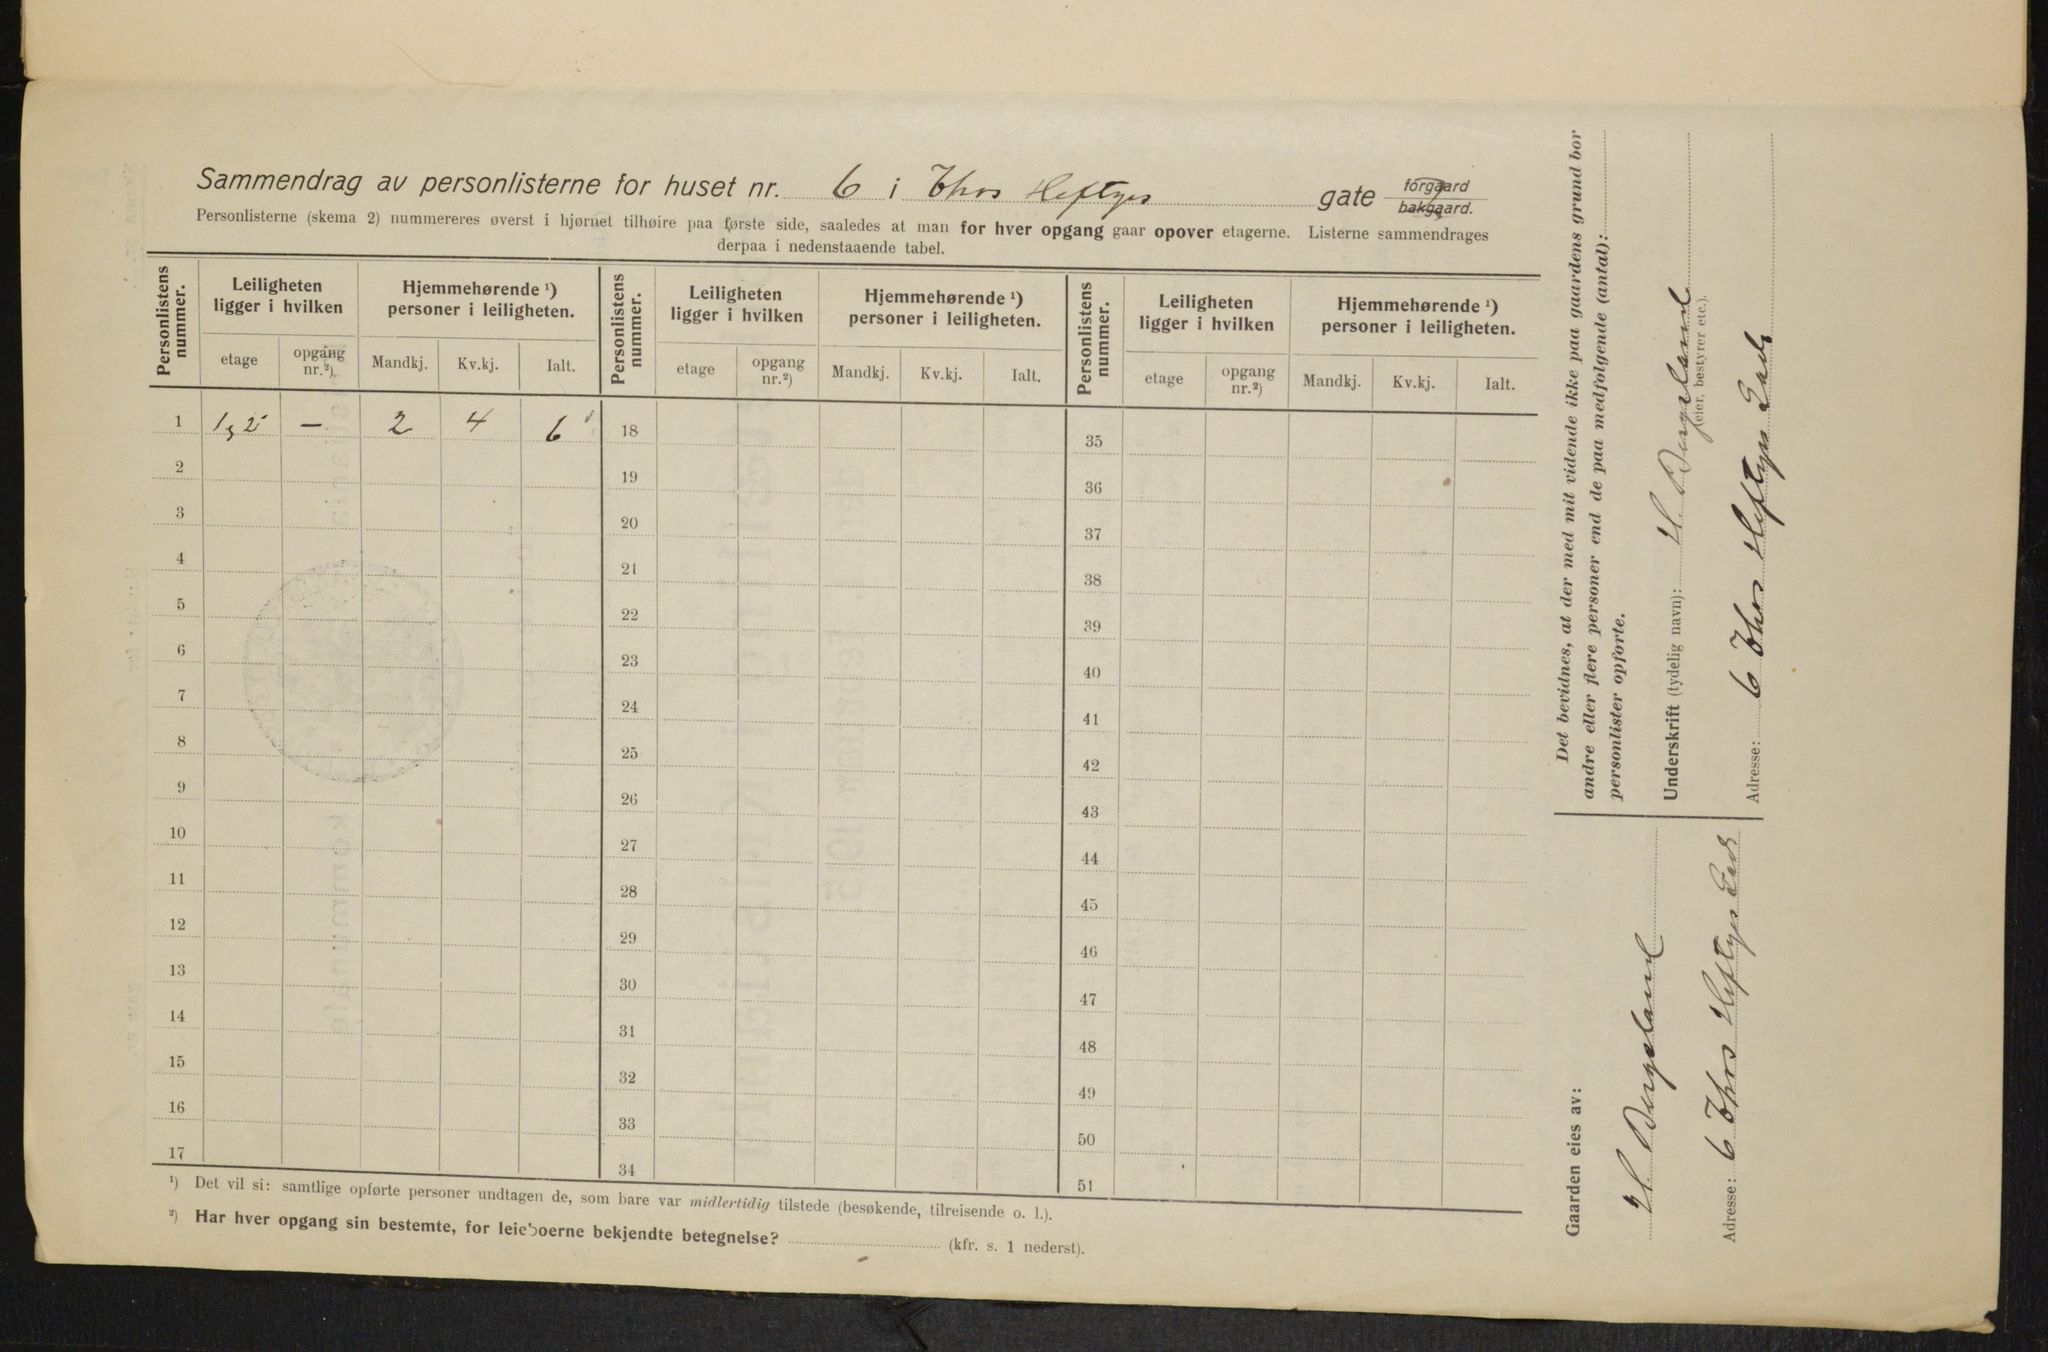 Sammendrag av personlisterne for huset nr. 6 i Thos Heftyes gate forgaard bakgaard.
Personlisterne (skema 2) nummereres øverst i hjørnet tilhøire paa første side, saaledes at man for hver opgang gaar opover etagerne. Listerne sammendrages
derpaa i nedenstaaende tabel.
Personlistens nummer. Leiligheten ligger i hvilken Hjemmehørende ¹) personer i leiligheten. Personlistens nummer. Leiligheten ligger i hvilken Hjemmehørende ¹) personer i leiligheten. Personlistens nummer. Leiligheten ligger i hvilken Hjemmehørende ¹) personer i leiligheten.
etage opgang nr.²) Mandkj. Kv.kj. Ialt. etage opgang nr.²) Mandkj. Kv.kj. Ialt. etage opgang nr.²) Mandkj. Kv.kj. Ialt.
1 1, 2 — 2 4 6 18 35
2 19 36
3 20 37
4 21 38
5 22 39
6 23 40
7 24 41
8 25 42
9 26 43
10 27 44
11 28 45
12 29 46
13 30 47
14 31 48
15 32 49
16 33 50
17 34 51
¹) Det vil si: samtlige opførte personer undtagen de, som bare var midlertidig tilstede (besøkende, tilreisende o. l.).
²) Har hver opgang sin bestemte, for leieboerne bekjendte betegnelse? (kfr. s. 1 nederst).
Det bevidnes, at der med mit vidende ikke paa gaardens grund bor
andre eller flere personer end de paa medfølgende (antal):
personlister opførte.
Underskrift (tydelig navn): H. Bergeland
(eier, bestyrer etc.).
Adresse: 6 Thos Heftyes Gade
Gaarden eies av:
H. Bergeland
Adresse: 6 Thos Heftyes Gade